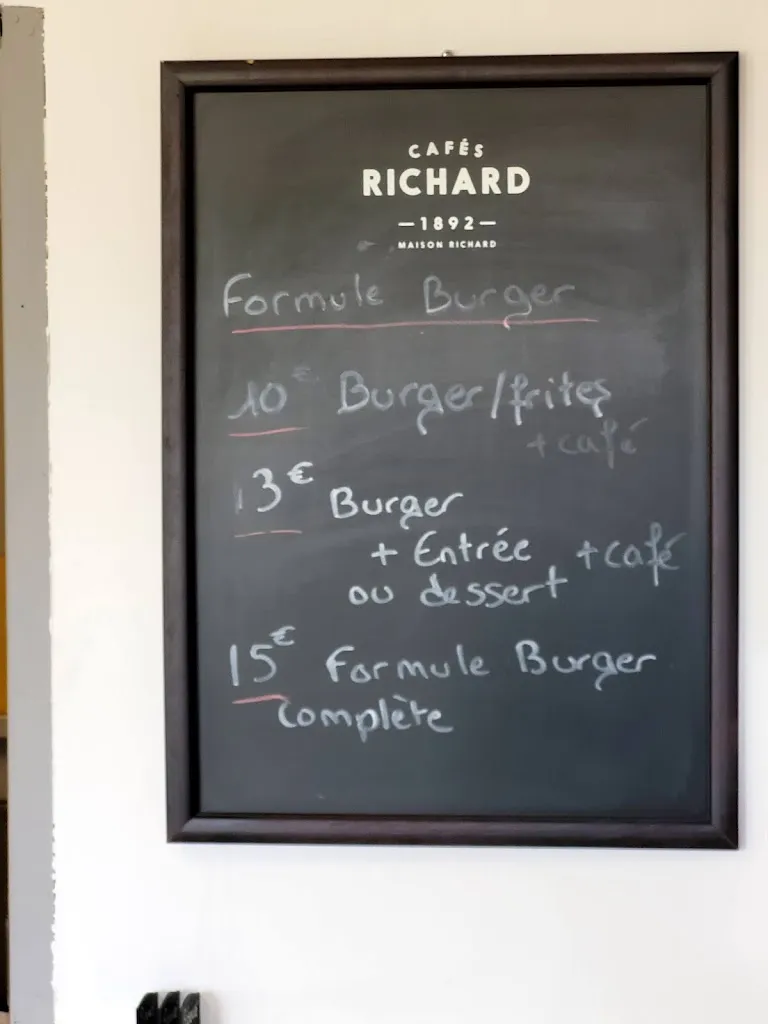 CAFÉS
RICHARD
—1892—
MAISON RICHARD
Formule Burger
10€ Burger/frites
+ café
13€ Burger
+ Entrée + café
ou dessert
15€ Formule Burger
Complète